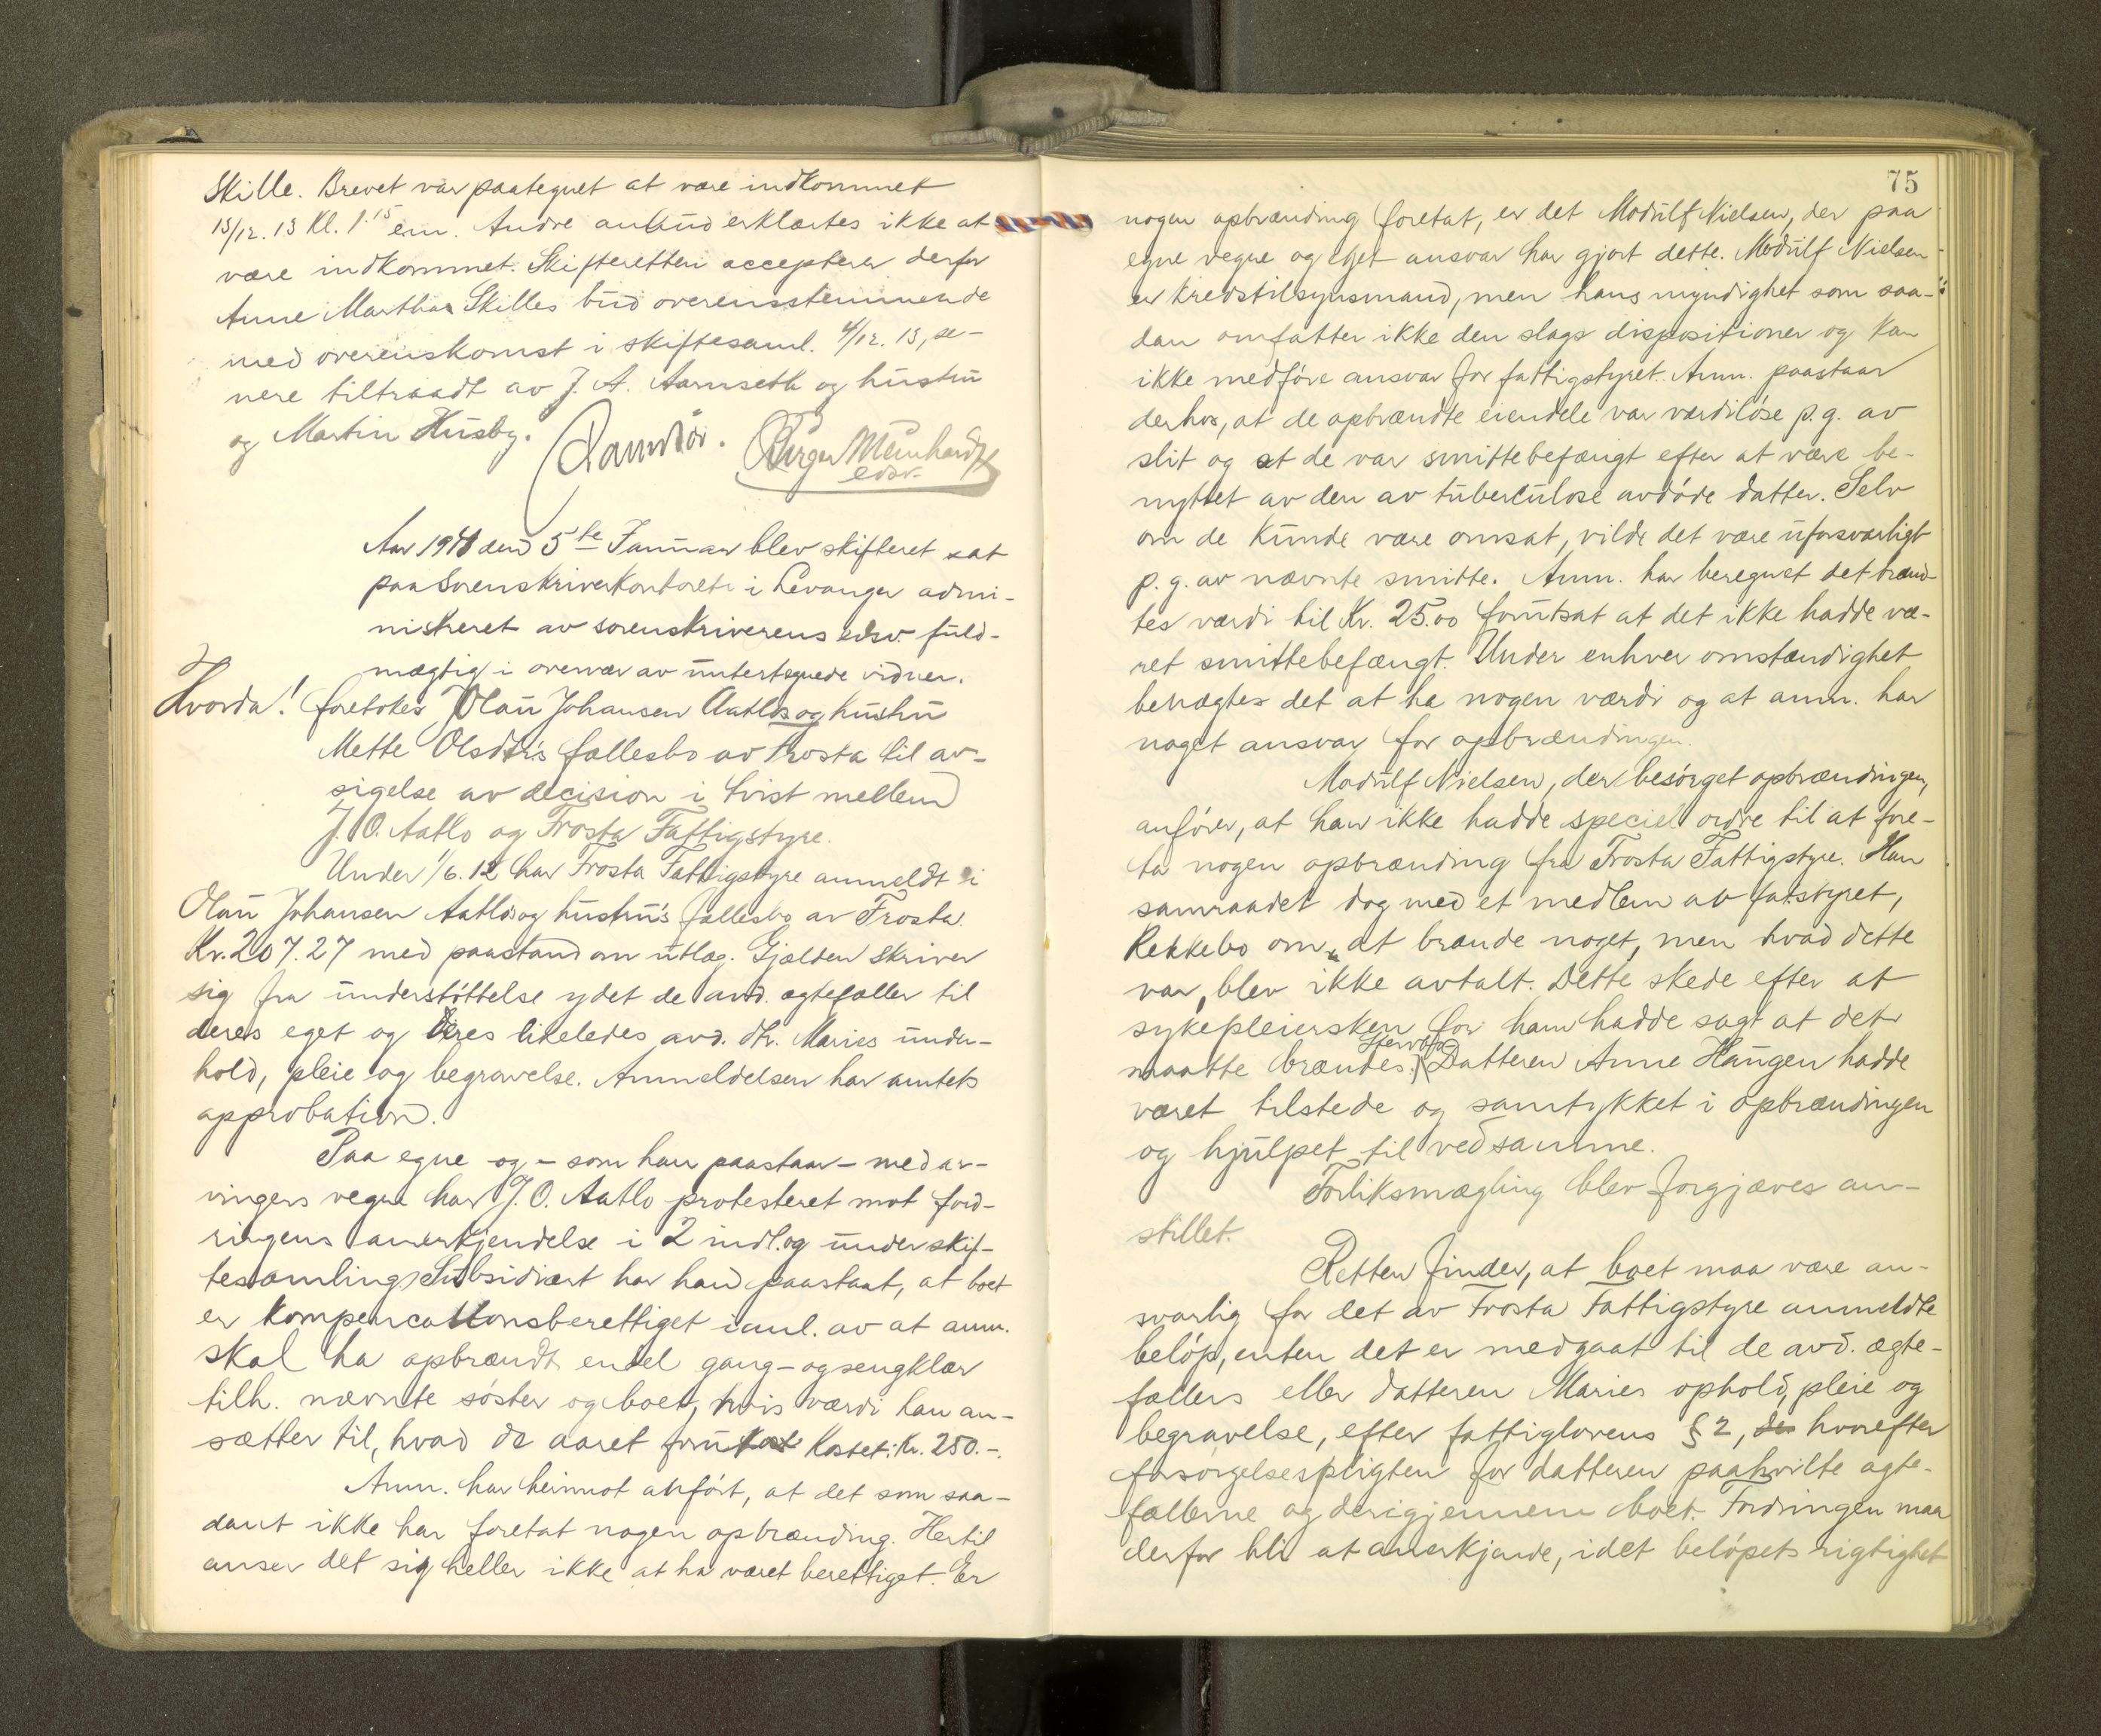 Skille. Brevet var paategnet at være indkommet
13/12. 13 Kl. 1.15 em. Andre anbud erklærtes ikke at
være indkommet. Skifteretten accepterer derfor
Anne Marthas Skilles bud overensstemmende
med overenskomst i skiftesaml. 4/12. 13, se-
nere tiltraadt av J. A. Aarnseth og hustru
og Martin Husby.
Birger Meinhardt
edsv.
Aar 191 den 5te Januar blev skifteret sat
paa Sorenskriverkontoret i Levanger admi-
nistreret av sorenskriverens edsv. fuld-
mægtig i overvær av untertegnede vidner.
Hvorda! foretokes Olau Johansen Aatlos og hustru
Mette Olsdtrs fællesbo av Frosta til av-
sigelse av decision i tvist mellem
J. O. Aatlo og Frosta Fattigstyre.
Under 1/6. 12 har Frosta Fattigstyre anmeldt i
Olau Johansen Aatlos og hustru's fællesbo av Frosta
Kr. 207.27 med paastand om utlæg. Gjælden skriver
sig fra understøttelse ydet de avd. ægtefæller til
deres eget og deres likeledes avd. dtr. Maries under-
hold, pleie og begravelse. Anmeldelsen har amtets
approbation.
Paa egne og - som han paastaar - medar-
vingers vegne har J. O. Aatlo protesteret mot ford-
ringens anerkjendelse i 2 indl. og under skif-
tesamling. Subsidiært har han paastaat, at boet
er kompencationsberettiget i anl. av at anm.
skal ha opbrændt endel gang- og sengklær
tilh. nævnte søster og boet, hvis værdi han an-
sætter til, hvad de aaret forut kostet: Kr. 250.-.
Anm. har heimot anført, at det som saa-
dant ikke har foretat nogen opbrænding. Hertil
anser det sig heller ikke at ha været berettiget. Er
75
nogen opbrænding foretat, er det Modulf Nielsen, der paa
egne vegne og eget ansvar har gjort dette. Modulf Nielsen
er kredstilsynsmand, men hans myndighet som saa-
dan omfatter ikke den slags dispositioner og kan
ikke medføre ansvar for fattigstyret. Anm. paastaar
derhos, at de opbrændte eiendele var værdiløse p.g. av
slit og at de var smittebefængt efter at være be-
nyttet av den av tuberculose avdøde datter. Selv
om de kunde være omsat, vilde det være uforsvarligt
p.g. av nævnte smitte. Anm. har beregnet det brænd-
tes værdi til Kr. 25.00 forutsat at det ikke hadde væ-
ret smittebefængt. Under enhver omstændighet
benægtes det at ha nogen værdi og at anm. har
noget ansvar for opbrændingen.
Modulf Nielsen, der besørget opbrændingen,
anfører, at han ikke hadde speciel ordre til at fore-
ta nogen opbrænding fra Frosta Fattigstyre. Han
samraadet dog med et medlem av fatstyret,
Rekkebo om at brænde noget, men hvad dette
var, blev ikke avtalt. Dette skede efter at
sykepleiersken for ham hadde sagt at det
maatte brændes. Datteren Anne Haugen hadde
været tilstede og samtykket i opbrændingen
og hjulpet til ved samme.
Forliksmægling blev forgjæves an-
stillet.
Retten finder, at boet maa være an-
svarlig for det av Frosta Fattigstyre anmeldte
beløp, enten det er medgaat til de avd. ægte-
fællers eller datteren Maries ophold, pleie og
begravelse, efter fattiglovens § 2, hvorefter
forsorgelsespligten for datteren paahvilte ægte-
fællerne og derigjennem boet. Fordringen maa
derfor bli at anerkjende, idet beløpets rigtighet